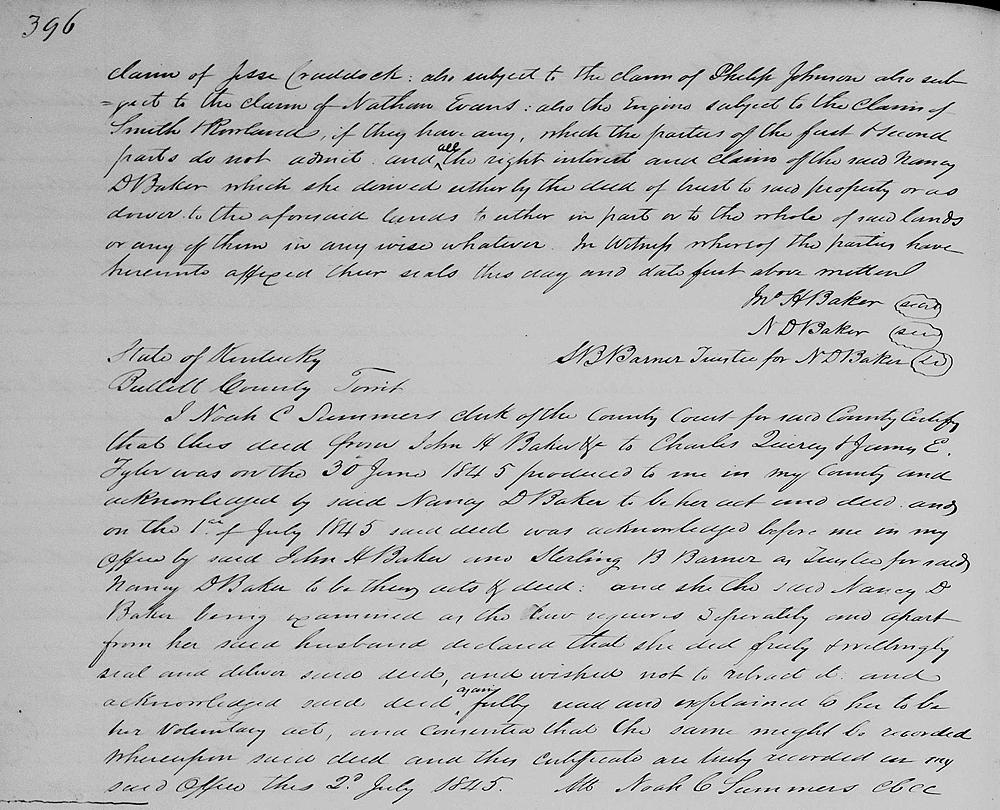 396
claim of Jesse Craddock: also subject to the claim of Philip Johnson also sub-
=ject to the claim of Nathan Evans: also the Engine subject to the claim of
Smith & Rowland, if they have any, which the parties of the first & second
parts do not admit. and all the right interest and claim of the said Nancy
D Baker which she derived either by the deed of trust to said property or as
dower to the aforesaid lands to either in part or to the whole of said lands
or any of them in any wise whatever. In Witness whereof the parties have
hereunto affixed their seals this day and date first above written
Jno H Baker seal
N D Baker
S B Barner Trustee for N D Baker
State of Kentucky
Bullitt County
I Noah C Summers clerk of the County Court for said County Certify
that this deed from John H Baker & to Charles Quirey & James E.
Tyler was on the 30 June 1845 produced to me in my County and
acknowledged by said Nancy D Baker to be her act and deed. and
on the 1st of July 1845 said deed was acknowledged before me in my
Office by said John H Baker and Sterling B Barner as Trustee for said
Nancy D Baker to be their acts & deed: and she the said Nancy D
Baker being examined as the law requires Seperately and apart
from her said husband declared that she did freely & willingly
seal and deliver said deed, and wished not to retract it. and
acknowledged said deed, again fully read and explained to her to be
her Voluntary act, and consented that the same might be recorded
Whereupon said deed and this certificate are truly recorded in my
said Office this 2d July 1845. Att Noah C Summers cbcc